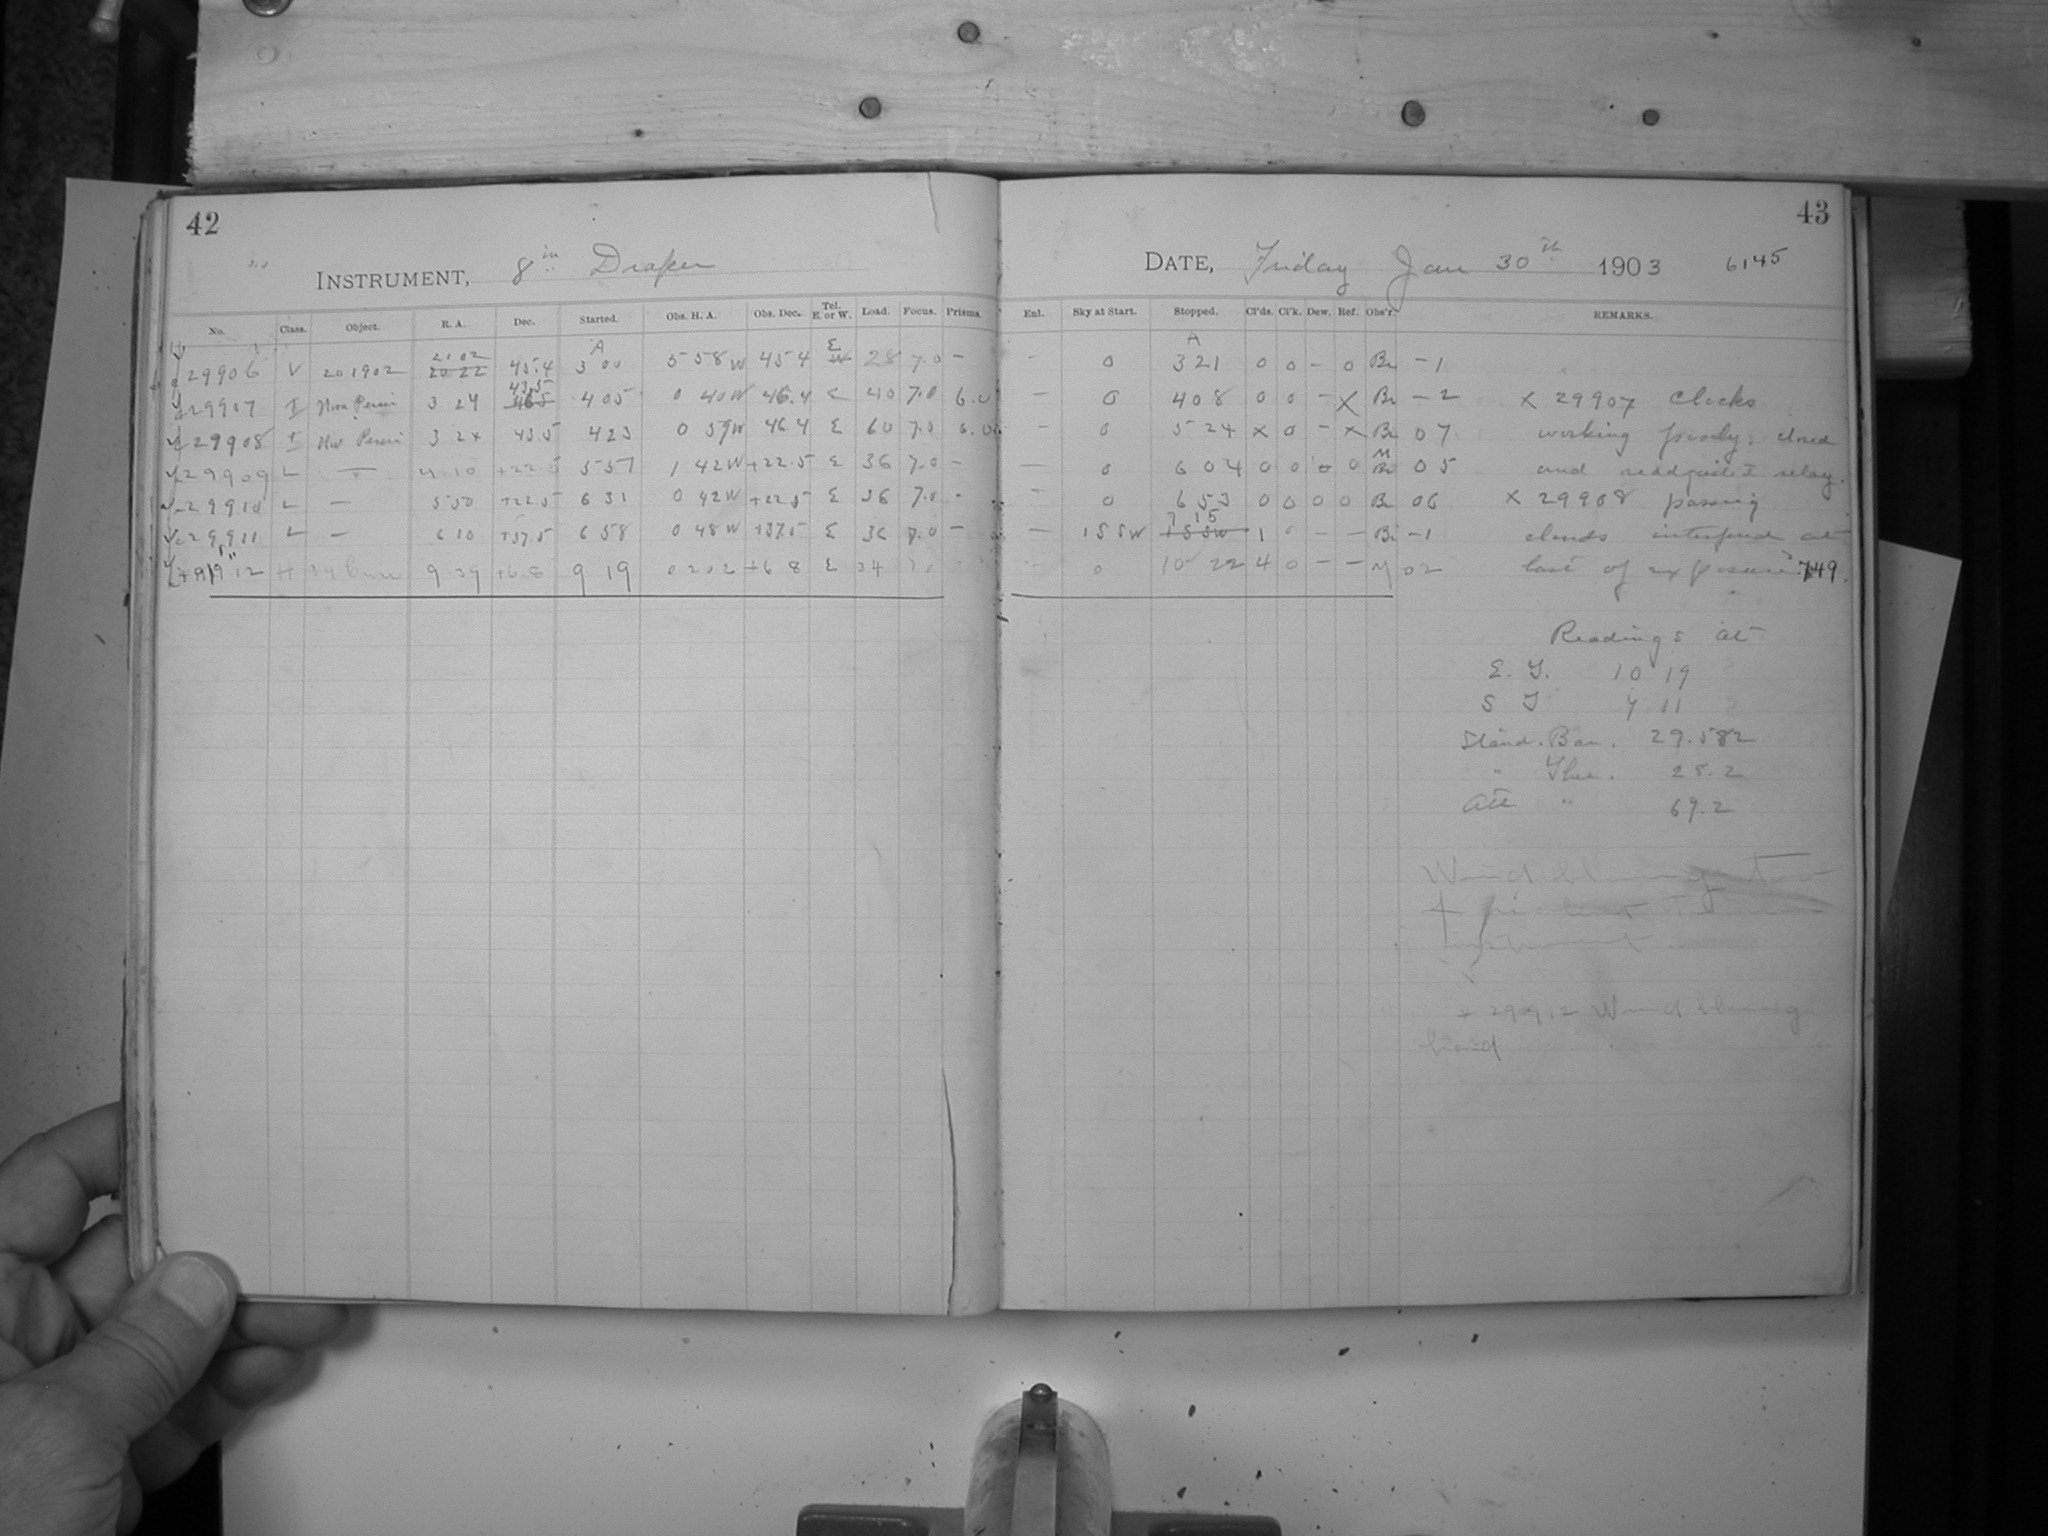 42
INSTRUMENT, 8 in Draper
No. Class. Object. R. A. Dec. Started. Obs. H. A. Obs. Dec. Tel. E. or W. Load. Focus. Prisms.
29906 V 201902 21 02 20 22 45.4 A 3 00 5 58 W 45 4 E W 28 7.0 –
29907 I Nova Persei 3 24 43.5 46.5 4 05 0 40 W 46.4 E 40 7.0 6.0
29908 I Nov. Persei 3 24 43.5 4 23 0 59 W 46.4 E 60 7.0 6.0
29909 L – 4 10 +22.5 5 57 1 42 W +22.5 E 36 7.0 –
29910 L – 5 50 +22.5 6 31 0 42 W +22.5 E 36 7.0 -
29911 L – 6 10 +37.5 6 58 0 48 W +37.5 E 36 7.0 –
29912 H 9 39 +6.8 9 19 0 20 2 +6 8 E 34 7.0
43
DATE, Friday Jan 30th 1903 6145
Enl. Sky at Start. Stopped. Cl'ds. Cl'k. Dew. Ref. Obs'r. REMARKS.
- 0 A 3 21 0 0 – 0 Br – 1
– 0 4 08 0 0 – X Br – 2 X 29907 Clocks
- 0 5 24 X 0 – X Br 07 working poorly. closed
– 0 6 04 0 0 0 0 M Br 05 and readjusted relay.
- 0 6 53 0 0 0 0 Br 06 X 29908 passing
– 1 S S W 7 15 1 S SW 1 0 – – Br – 1 clouds interfered at
- 0 10 22 4 0 – – M 02 last of exposure. 749.
Readings at
E. T. 10 19
S T 7 11
Stand. Bar. 29.582
" Ther. 28.2
Att " 69.2
Wind blowing too
violent
instrument
X 29912 Wind blowing
hard